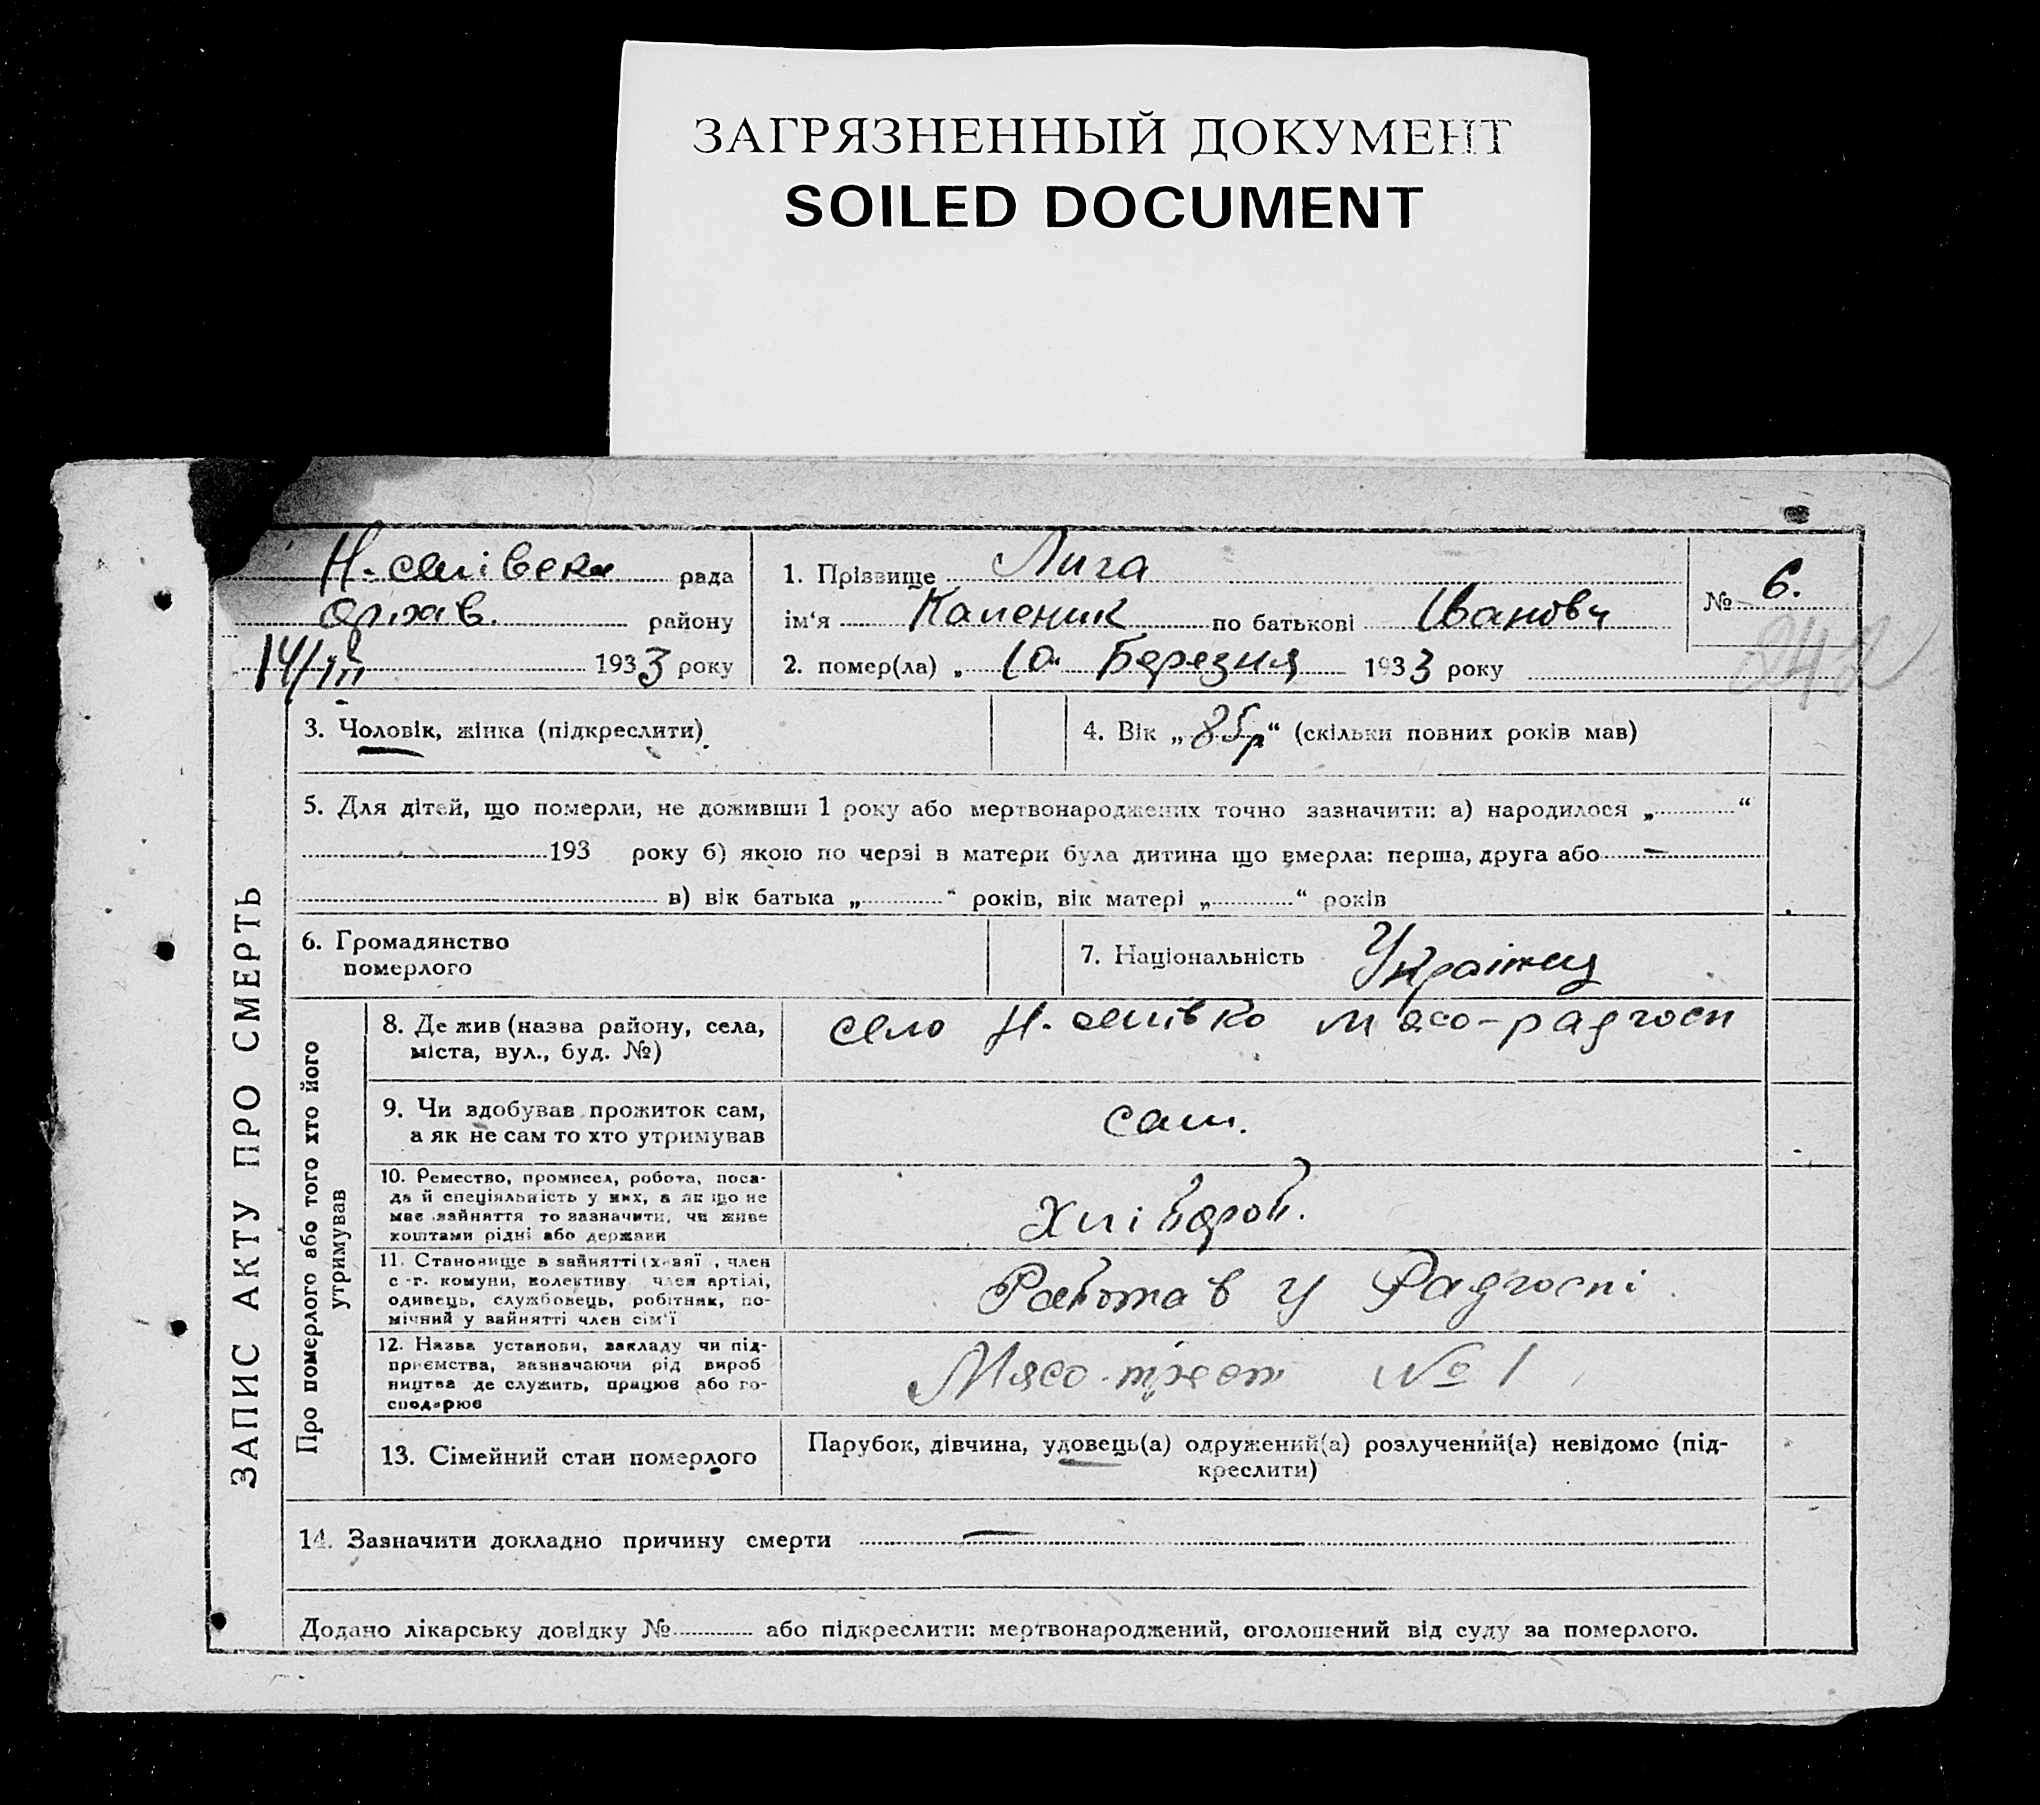 ЗАГРЯЗНЕННЫЙ ДОКУМЕНТ
SOILED DOCUMENT
рада
району
14/III 1933 року
1. Прізвище Лига
ім'я Каленик по батькові Іванови
2. помер(ла) „ 10 Березня 1933 року
№ 6.
242
ЗАПИС АКТУ ПРО СМЕРТЬ
3. Чоловік, жінка (підкреслити)
4. Вік „ 85р “ (скільки повних років мав)
5. Для дітей, що померли, не доживши 1 року або мертвонароджених точно зазначити: а) народилося „ “
193 року б) якою по черзі в матери була дитина що вмерла: перша, друга або
в) вік батька „ “ років, вік матері „ “ років
6. Громадянство
померлого
7. Національність Українец
Про померлого або того хто його
утримував
8. Де жив (назва району, села,
міста, вул., буд. №)
село Мясо-радгосп
9. Чи здобував прожиток сам,
а як не сам то хто утримував
сам.
10. Ремество, промисел, робота, поса-
да й спеціяльність у них, а якщо не
має зайняття то зазначити, чи живе
коштами рідні або держави
Хліbороb.
11. Становище в зайнятті (хазяї, член
с.-г. комуни, колективу член артілі,
одинець, службовець, робітник, по-
мічний у зайнятті член сім'ї
Работав у Радгоспі
12. Назва установи, закладу чи під-
приємства, зазначаючи рід вироб
ництва де служить, працює або го-
сподарює
Мясо-трест № 1
13. Сімейний стан померлого
Парубок, дівчина, удовець(а) одружений(а) розлучений(а) невідомо (під-
креслити)
14. Зазначити докладно причину смерти —
Додано лікарську довідку № або підкреслити: мертвонароджений, оголошений від суду за померлого.